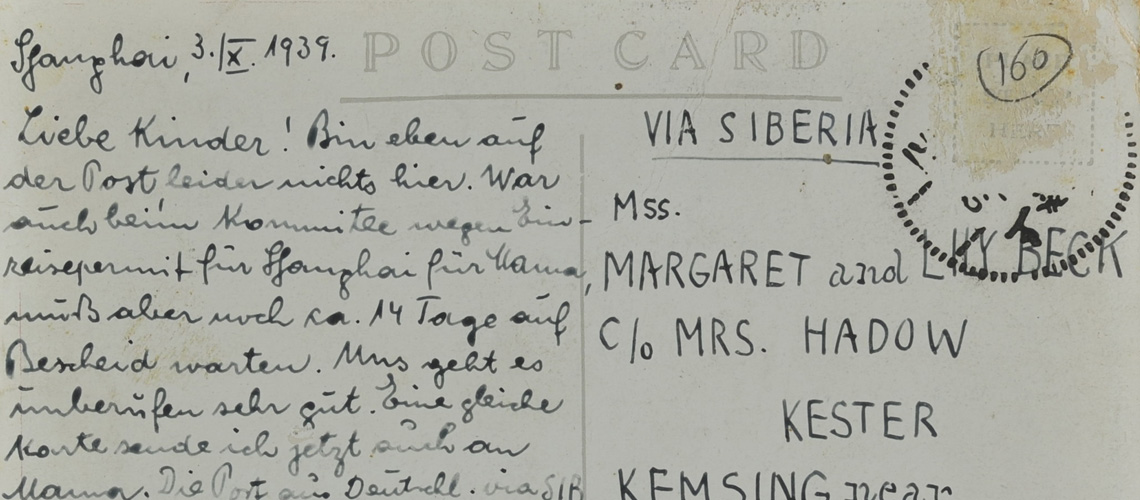 Shanghai, 3./X. 1939.
POST CARD
160
HERE
Liebe Kinder! Bin eben auf
der Post leider nichts hier. War
auch beim Kommitee wegen Ein-
reisepermit für Shanghai für Mama,
muß aber noch ca. 14 Tage auf
Bescheid warten. Uns geht es
unberufen sehr gut. Eine gleiche
Karte sende ich jetzt auch an
Mama. Die Post aus Deutschl. via SIB
VIA SIBERIA
Mss.
MARGARET and LILLY BECK
C/o MRS. HADOW
KESTER
KEMSING near